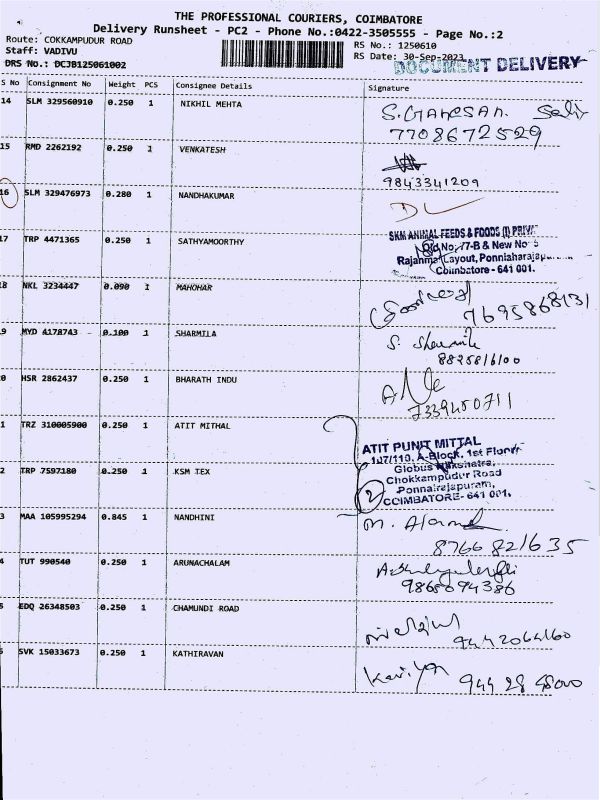 THE PROFESSIONAL COURIERS, COIMBATORE
Delivery Runsheet - PC2 - Phone No.:0422-3505555 - Page No.:2
Route: COKKAMPUDUR ROAD
RS No.: 1250610
Staff: VADIVU
RS Date: 30-Sep-2023
DRS No.: DCJB125061002
DOCUMENT DELIVERY
S No Consignment No Weight PCS Consignee Details Signature
14 SLM 329560910 0.250 1 NIKHIL MEHTA S. GANESAN.
7708672529
15 RMD 2262192 0.250 1 VENKATESH
9843341209
16 SLM 329476973 0.280 1 NANDHAKUMAR
17 TRP 4471365 0.250 1 SATHYAMOORTHY SKM ANIMAL FEEDS & FOODS (I) PRIVA
Old No. 77-B & New No
Rajanna Layout, Ponniaharajapuram
Coimbatore - 641 001.
8 NKL 3234447 0.090 1 MAHOHAR
7695868131
9 MYD 4178743 0.100 1 SHARMILA S. Sharmila
8825816100
0 HSR 2862437 0.250 1 BHARATH INDU
7339450711
1 TRZ 310005900 0.250 1 ATIT MITHAL ATIT PUNIT MITTAL
107/110, A-Block, 1st Floor
2 TRP 7597180 0.250 1 KSM TEX Globus
Chokkampudur Road
2 Ponnairajapuram,
COIMBATORE- 641 001.
3 MAA 105995294 0.845 1 NANDHINI M.
8766821635
4 TUT 990540 0.250 1 ARUNACHALAM
9865094386
5 EDQ 26348503 0.250 1 CHAMUNDI ROAD
9442064160
6 SVK 15033673 0.250 1 KATHIRAVAN Kaviya 944 28 48000